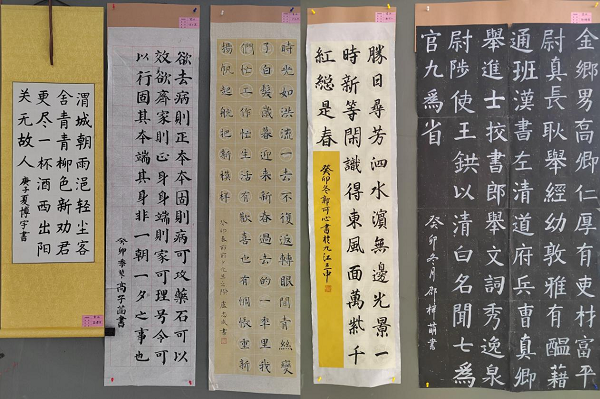 渭城朝雨浥轻尘客
舍青青柳色新劝君
更尽一杯酒西出阳
关无故人
庚子夏博宇书
欲去病則正本本固則病可攻藥石可以
效欲齊家則正身身端則家可理号令可
以行固其本端其身非一朝一夕之事也
癸卯季冬 高子菡書
時光如洪流一去不復返轉眼間青絲變
了白髮歲暮迎來新春過去的一年里我
們忙工作怡生活有歡喜也有惆悵重新
揚帆起航把新模样
勝日尋芳泗水濵無邊光景一
時新等閑識得東風面萬紫千
紅總是春
癸卯冬鄭可心書於九江三中
金鄉男高卿仁厚有吏材富平
尉真長耿舉經幼敦雅有醞藉
通班漢書左清道府兵曹真卿
舉進士挍書郎舉文詞秀逸泉
尉陟使王鉷以清白名聞七為
官九為省
癸卯冬月邵梓萌書